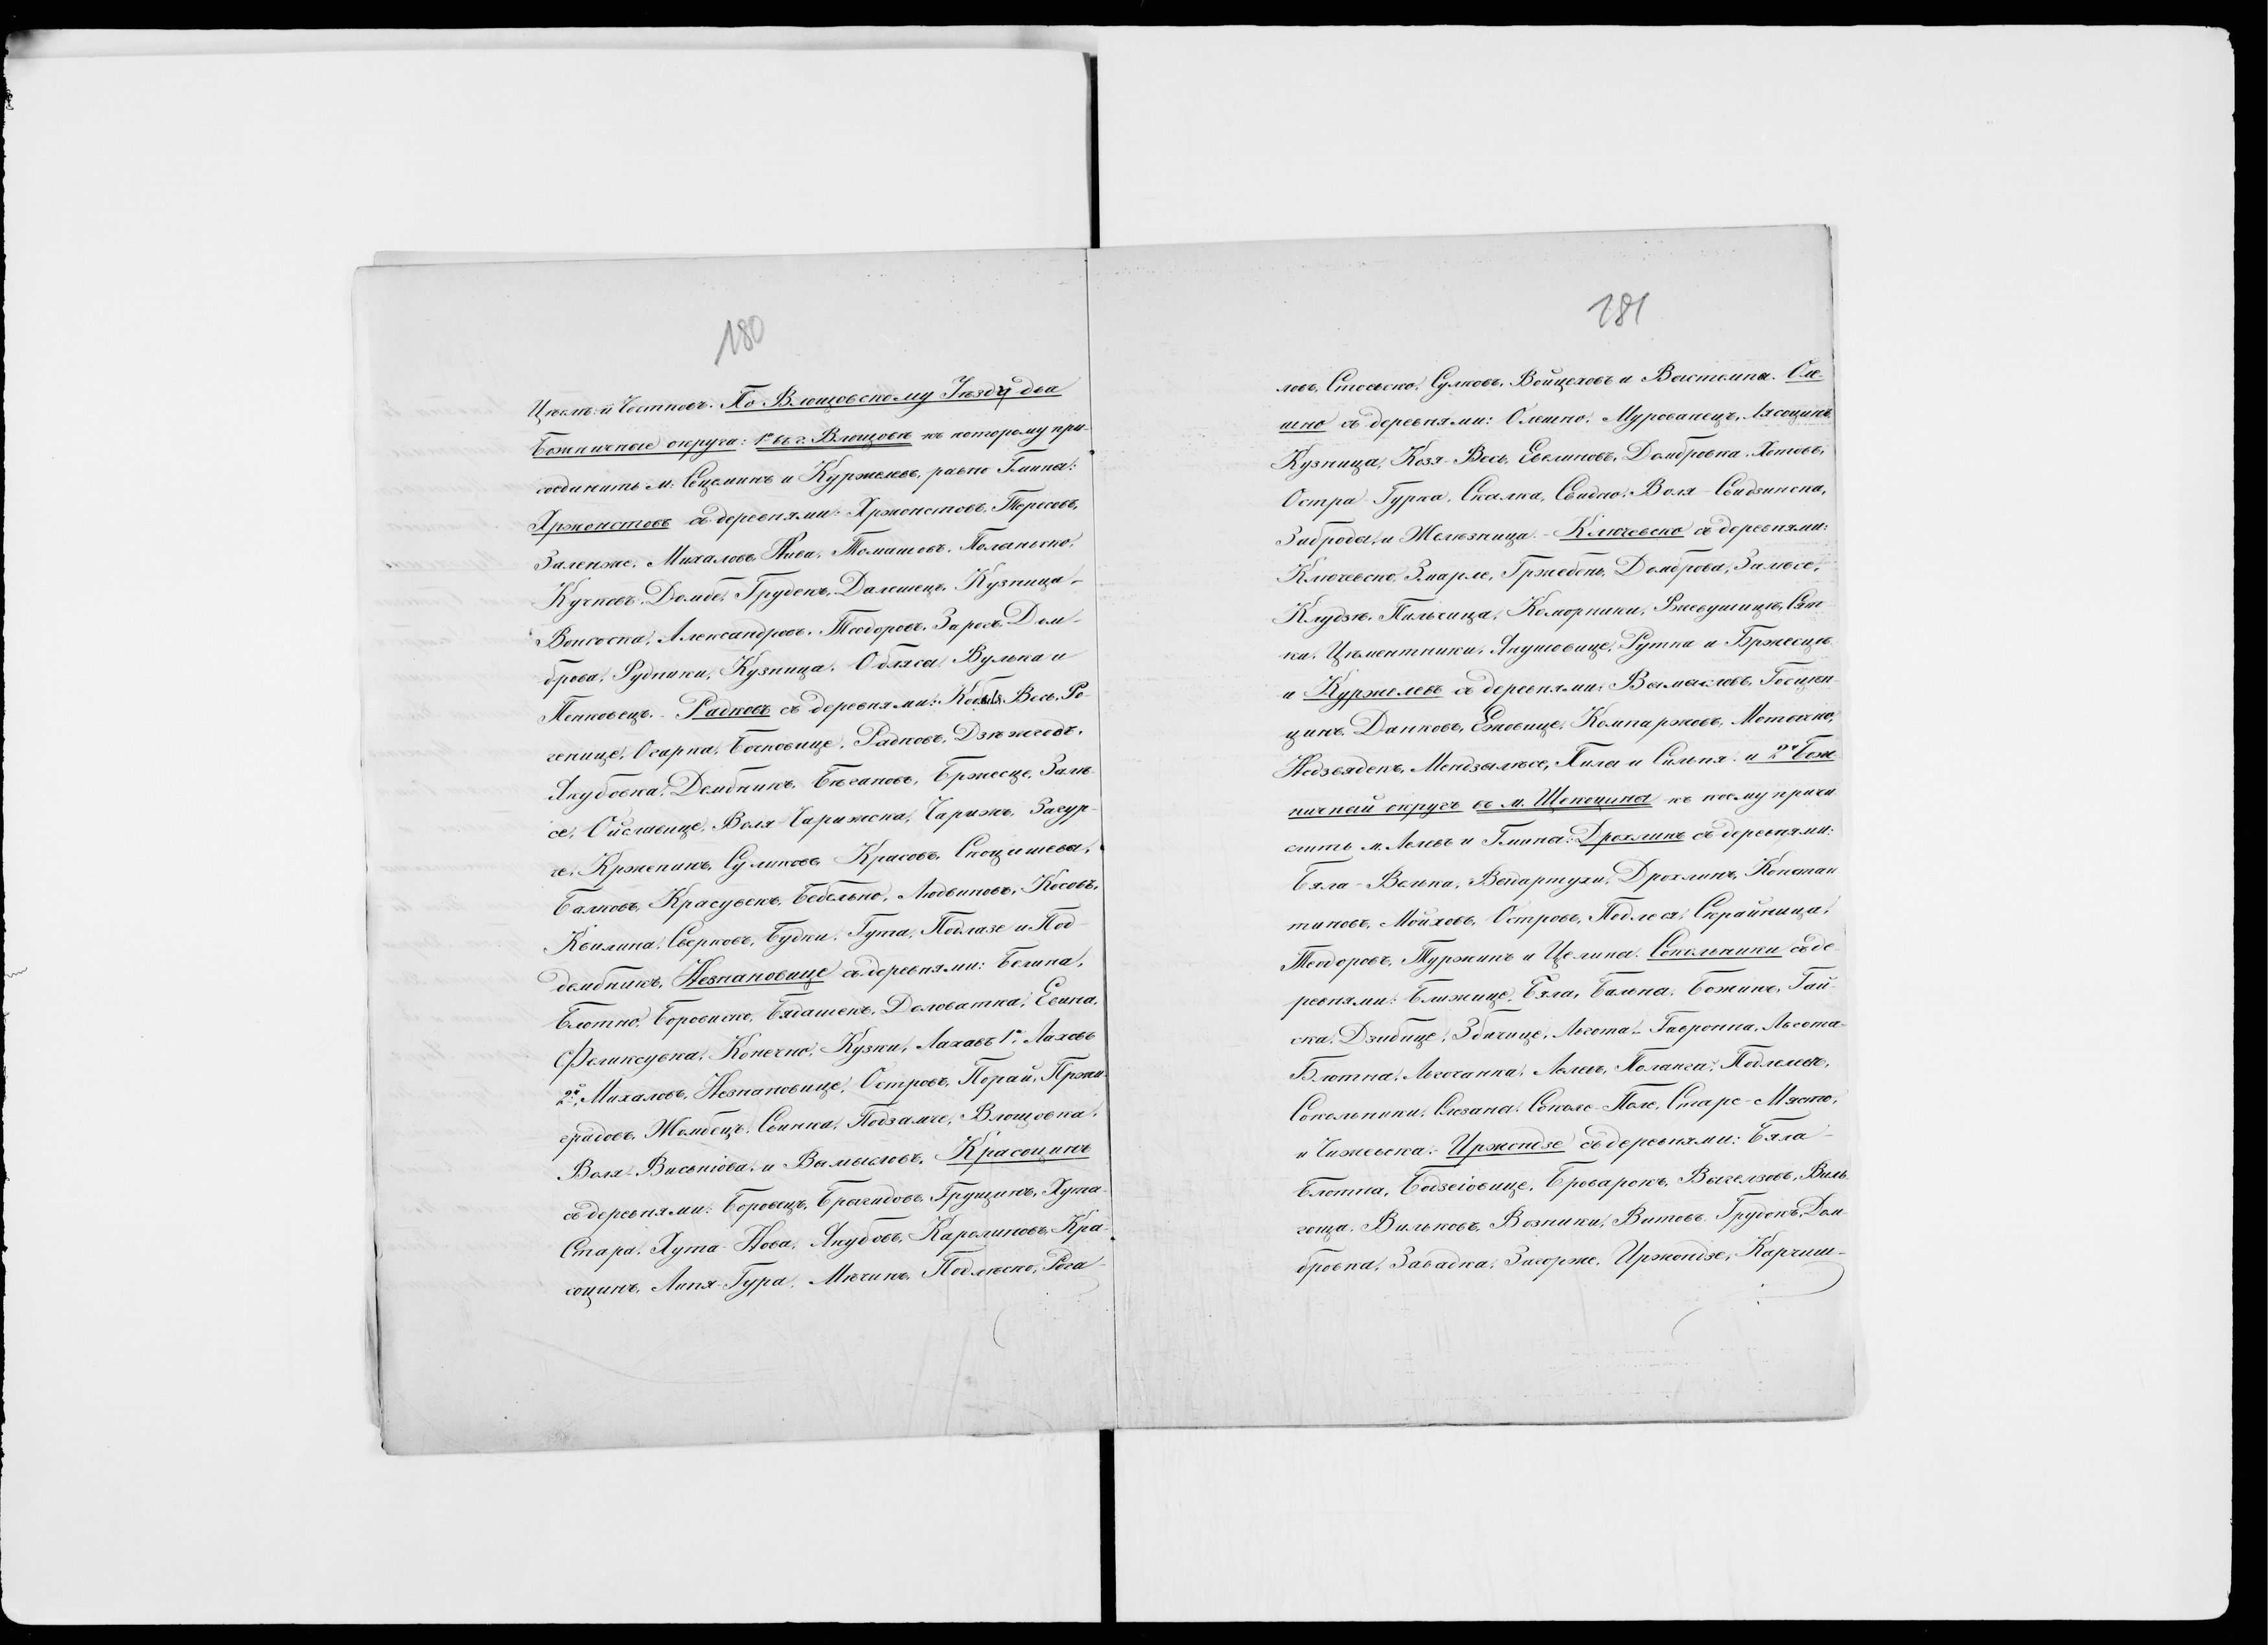 180
Цеслѣ и Чостковъ. По Влощовскому Уѣзду два
Божничные округа: 1.й въ г. Влощовѣ къ которому при-
соединить м. Сецеминъ и Куржелевъ, равно Гмины:
Хржонстовъ съ деревнями: Хржонстовъ, Тересовъ,
Заленже, Михаловъ, Нива, Томашовъ, Поланьско,
Кучковъ, Домбе, Грудекъ, Далешецъ, Кузница-
Вонсоска, Александровъ, Теодоровъ, Заросъ, Дом-
брова, Рудники, Кузница, Облясы, Вулька и
Пенковецъ. - Радковъ съ деревнями: Кобыля Весь, Ро-
геница, Огарка, Бочковице, Радковъ, Дзѣжгодъ,
Якубовка, Дембникъ, Бѣгановъ, Бржесце, Залѣ-
се, Ойславице, Воля-Чарижска, Чарижъ, Загур-
же, Кржепинъ, Суликовъ, Красовъ, Скоцишева,
Балковъ, Красувекъ, Бебельно, Людвиновъ, Косовъ,
Квилина, Сверковъ, Будки, Гута, Подлазе и Под-
дембникъ, Незнановице съ деревнями: Бегина,
Блотно, Боровиско, Бядашекъ, Доловатка, Евина,
Феликсувка, Конечно, Кузки, Лаховъ 1й, Лаховъ
2й, Михаловъ, Незнановице, Островъ, Порай, Пржи-
градовъ, Жомбецъ, Свинка, Подзамче, Влощовка,
Воля-Висьніова, и Вымысловъ, Красоцинъ
съ деревнями: Боровецъ, Брыгидовъ, Грущинъ, Хута-
Стара, Хута-Нова, Якубовъ, Каролиновъ, Кра-
социнъ, Липя-Гура, Мѣчинъ, Подлѣско, Рога-
181
ловъ, Стоєско, Сулковъ, Войцеховъ и Выстемпа. Оле-
шно съ деревнями: Олешно, Мурованецъ, Лясоцинъ,
Кузница, Козя-Весь, Евелиновъ, Домбровка, Хотовъ,
Остра-Гурка, Скалка, Свидно, Воля-Свидзинска,
Заброды, и Желѣзница. - Ключевско съ деревнями:
Ключевско, Змарле, Гржебень, Домброва, Залѣсе,
Клудзѣ, Пильчица, Коморники, Ржевушице,
ка, Цѣментники, Янушовице, Рутка и Бржесце
и Куржелевъ съ деревнями: Вымысловъ, Госцен-
цинъ, Данковъ, Ежовице, Компаржовъ, Моточно,
Недзвядекъ, Мендзылѣсе, Пила и Сильня. и 2й Бож-
ничный округъ въ м. Щекоцины къ коему причи
слить м. Лелевъ и Гмины: Дрохлинъ съ деревнями:
Бяла-Велька, Бонартухи, Дрохлинъ, Констан
тиновъ, Мойховъ, Островъ, Подлеся, Скрайница,
Теодоровъ, Туржинъ и Целина. Сокольники съ де-
ревнями: Ближице, Бяла, Бальна, Божинъ, Гай-
ска, Дзибице, Збичице, Льгота-Гавронна, Льгота-
Блотна, Льгочанка, Лелевъ, Поланга, Подлелевъ,
Сокольники, Слезаны, Соколе-Поле, Старе-Място,
и Чижевска. - Иржондзе съ деревнями: Бяла-
Блотна, Бодзеіовице, Броварокъ, Выгелзовъ, Виль-
гоща, Вильковъ, Возники, Витовъ, Грудекъ, Дом-
бровка, Завадка, Загорже, Иржондзе, Карчиш-